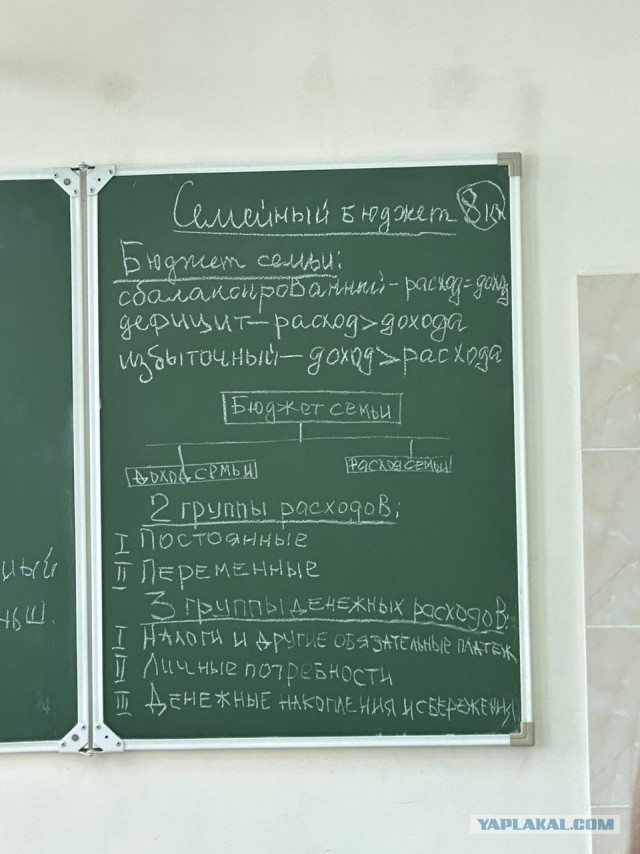 Семейный бюджет 8 кл
Бюджет семьи:
сбалансированный - расход = доход
дефицит - расход > дохода
избыточный - доход > расхода
Бюджет семьи
доход семьи
расход семьи
2 группы расходов:
I Постоянные
II Переменные
3 группы денежных расходов:
I Налоги и другие обязательные платеж
II Личные потребности
III Денежные накопления и сбережения
ный
ныш.
YAPLAKAL.COM